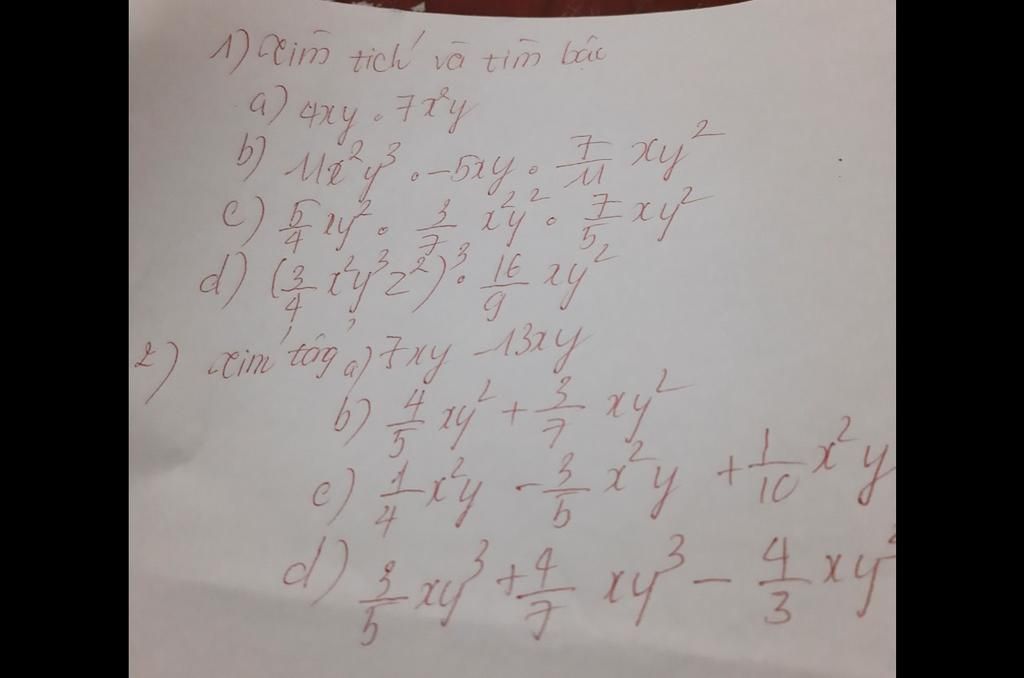 1) xim tích và tìm bâc
a) 4xy . 7x²y
b) 11x²y³ . -5xy . 7/11 xy²
c) 5/4 xy² . 3/7 x²y² . 7/5 xy²
d) (3/4 x²y³z²)³ . 16/9 xy²
2) xim tổng a) 7xy - 13xy
b) 4/5 xy² + 3/7 xy²
c) 1/4 x²y - 3/5 x²y + 1/10 x²y
d) 3/5 xy³ + 4/7 xy³ - 4/3 xy